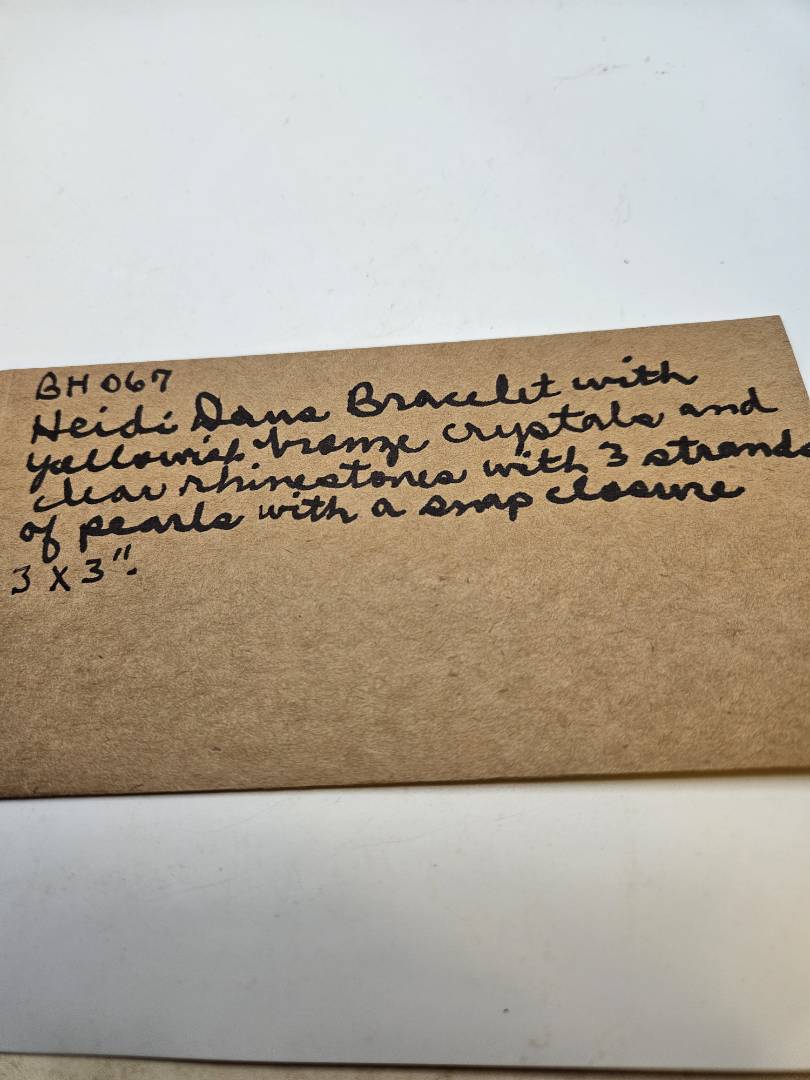 BH 067
Heidi Daus Bracelet with
yellowish bronze crystals and
clear rhinestones with 3 strands
of pearls with a snap closure
3 X 3".